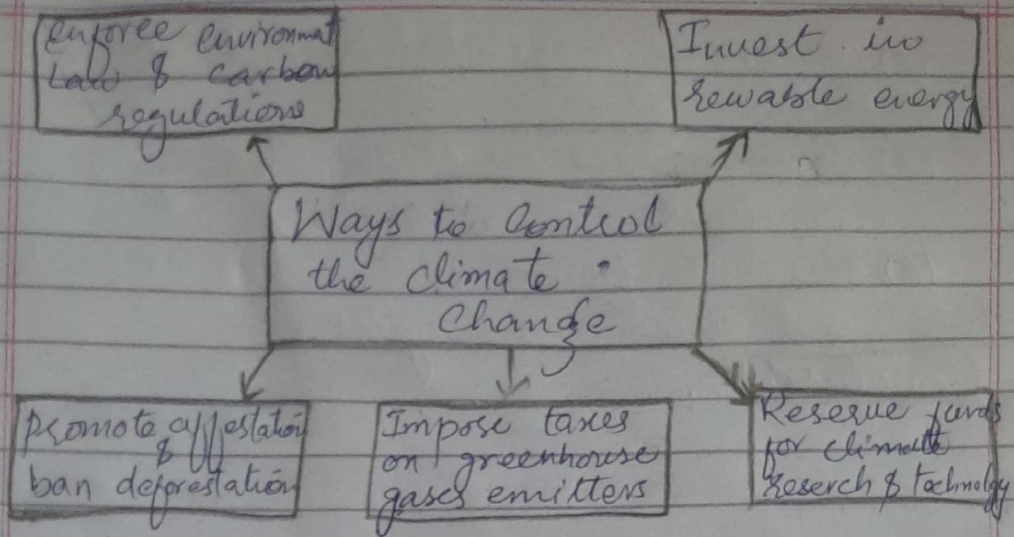 enforce environmat
Law & carbon
regulations
Invest in
rewable energy
Ways to Control
the climate
Change
Promote afforestation
&
ban deforestation
Impose taxes
on greenhouse
gases emitters
Reserve funds
for climate
reserch & technology